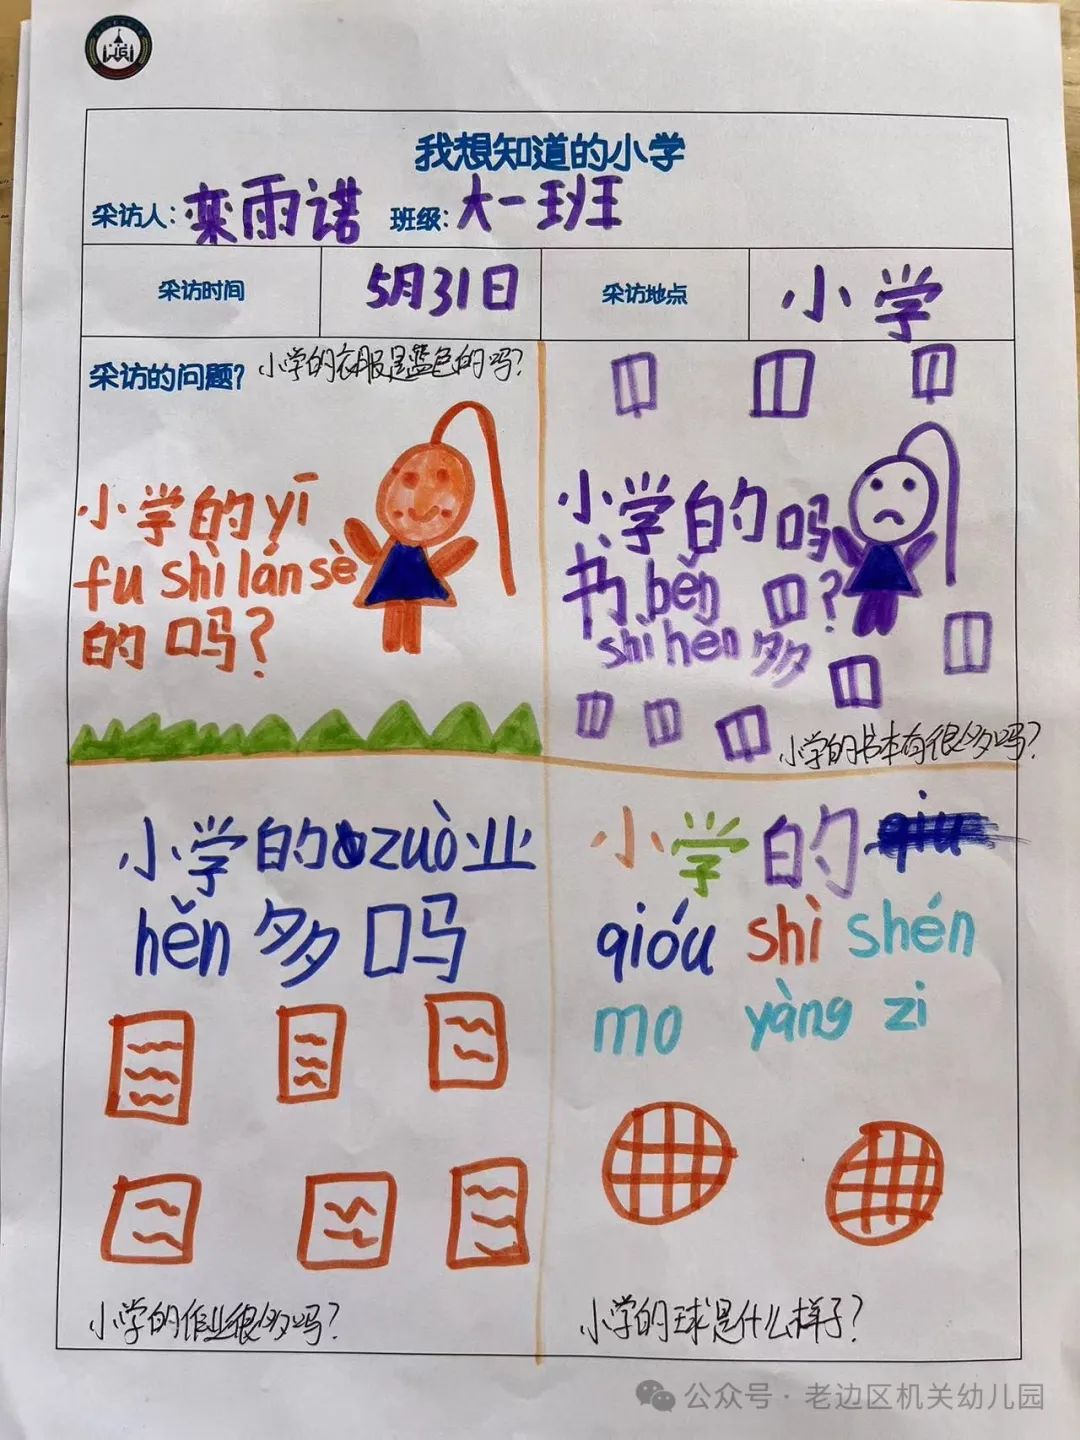 我想知道的小学
采访人：栾雨诺 班级：大一班
采访时间 5月31日 采访地点 小学
采访的问题？ 小学的衣服是蓝色的吗？
小学的yī
fu shì lán sè
的吗？
小学的吗
书běn ？
shì hěn 多
小学的书本有很多吗？
小学的zuò业
hěn多吗
小学的作业很多吗？
小学的qiu
qióu shì shén
mo yàng zi
小学的球是什么样子？
公众号·老边区机关幼儿园